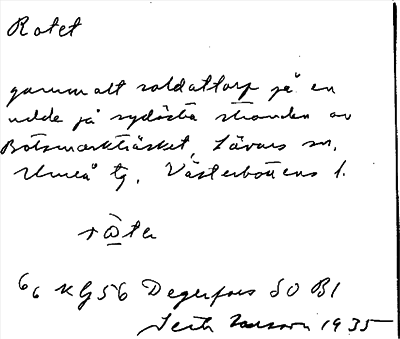 Rotet
gammalt soldattorp på en
udde på sydöstra stranden av
Botsmarkträsket, Sävars sn,
Umeå tg, Västerbottens l.
r@ter
66 KG56 Degerfors SO B1
Seth Larsson 1935